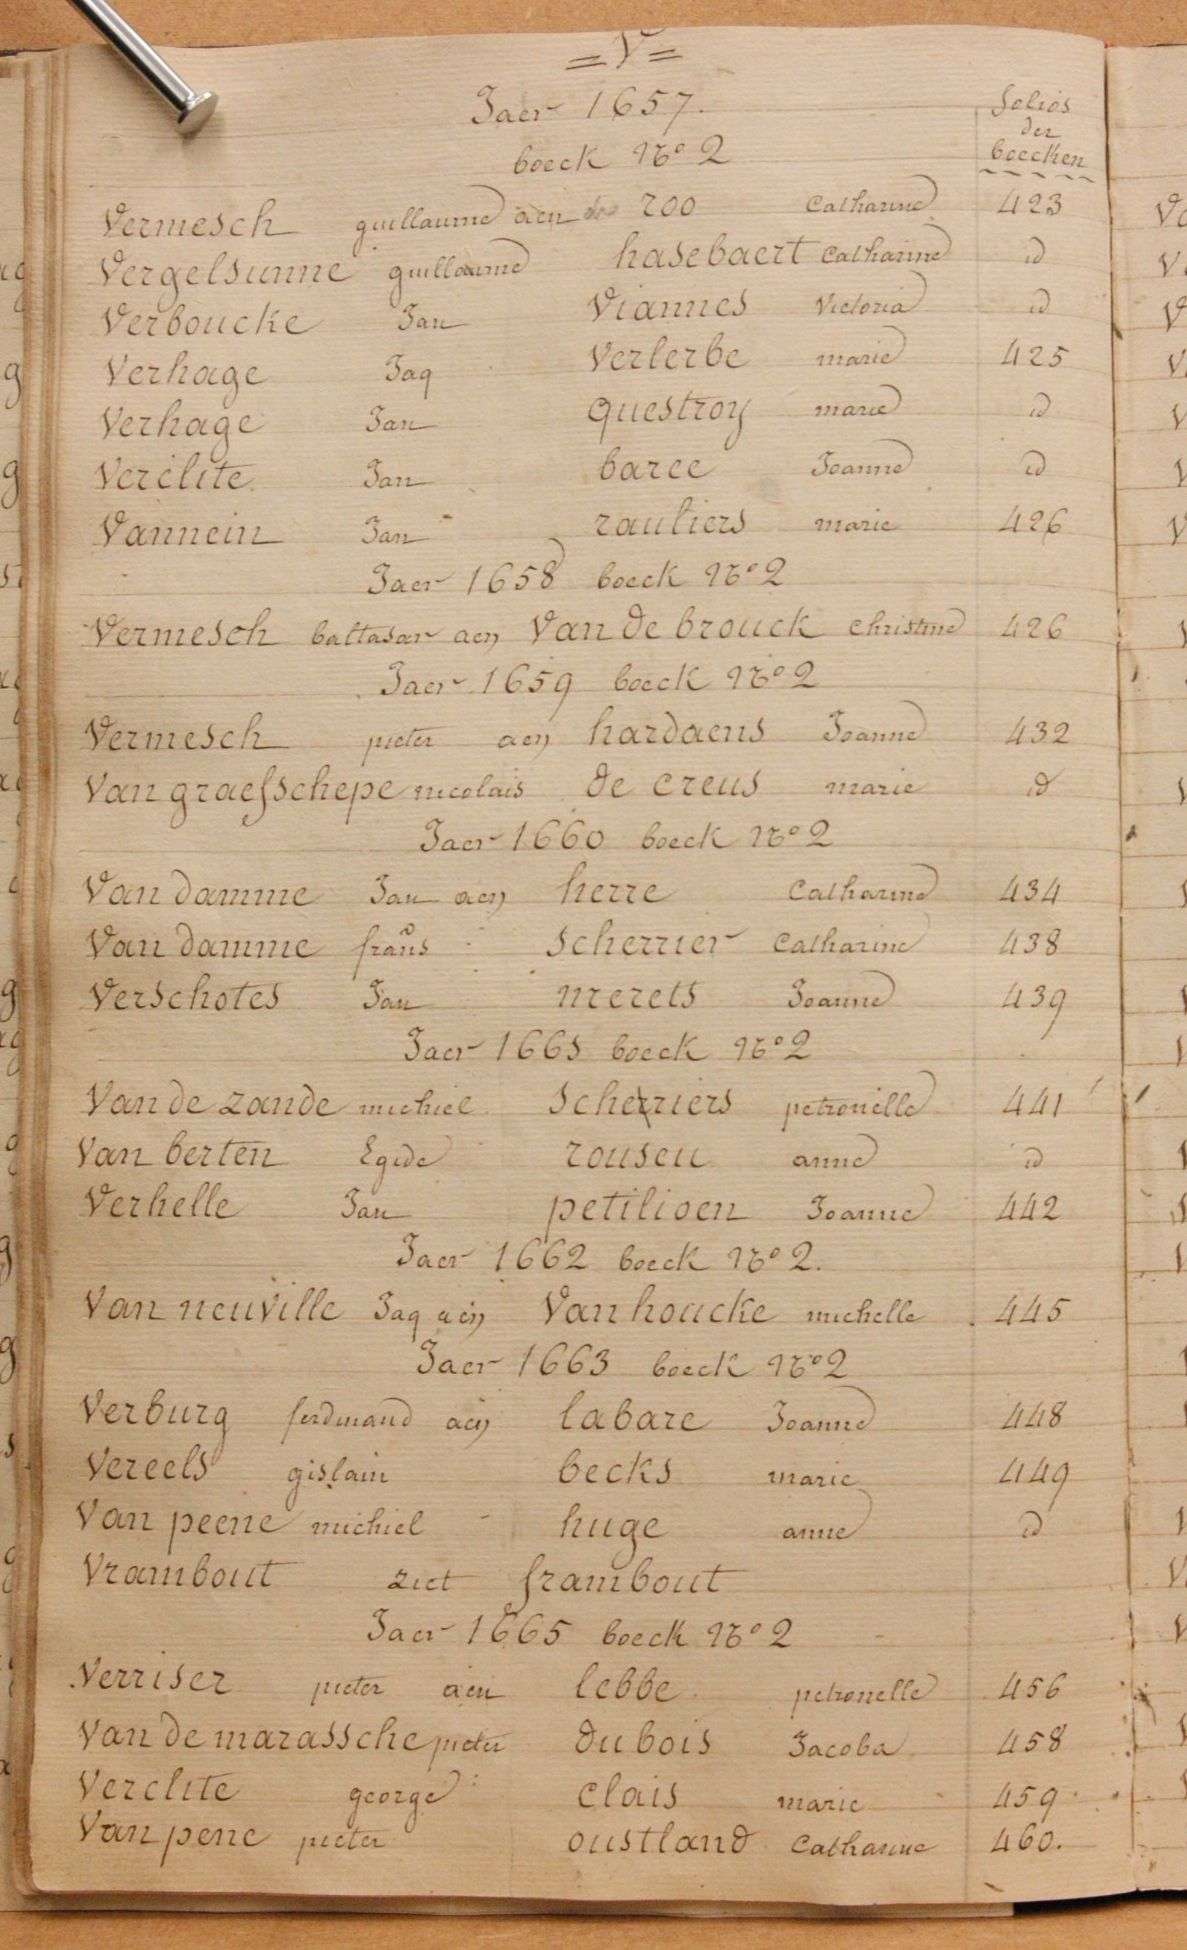 = V =
Jaer 1657.
folios
der
boecken
boeck No 2
Vermesch guillaume aen roo Catharine 423
Vergelsunne guillaume hasebaert Catharine id
Verboucke Jan Viannes Victoria id
Verhage Jaq Verlerbe marie 425
Verhage Jan questroy marie id
Verclite Jan baree Joanne id
Vannein Jan rauliers marie 426
Jaer 1658 boeck No 2
Vermesch baltasar aen Van de brouck Christine 426
Jaer 1659 boeck No 2
Vermesch pieter aen hardaens Joanne 432
Van graefschepe nicolais de creus marie id
Jaer 1660 boeck No 2
Van damme Jan aen herre Catharine 434
Van damme frans scherrier Catharine 438
Verschotes Jan merels Joanne 439
Jaer 1661 boeck No 2
Van de zande michiel scherriers petronelle 441
Van berten Egide rouseu anne id
Verhelle Jan petilioen Joanne 442
Jaer 1662 boeck No 2.
Van neuville Jaq aen Van houcke michelle 445
Jaer 1663 boeck No 2
Verburg ferdinand aen labare Joanne 448
Vereels gislain becks marie 449
Van peene michiel huge anne id
Vrambout ziet frambout
Jaer 1665 boeck No 2
Verriser pieter aen lebbe petronelle 456
Van de marassche pieter du bois Jacoba 458
Verclite george clais marie 459
Van pene pieter oustland Catharine 460.